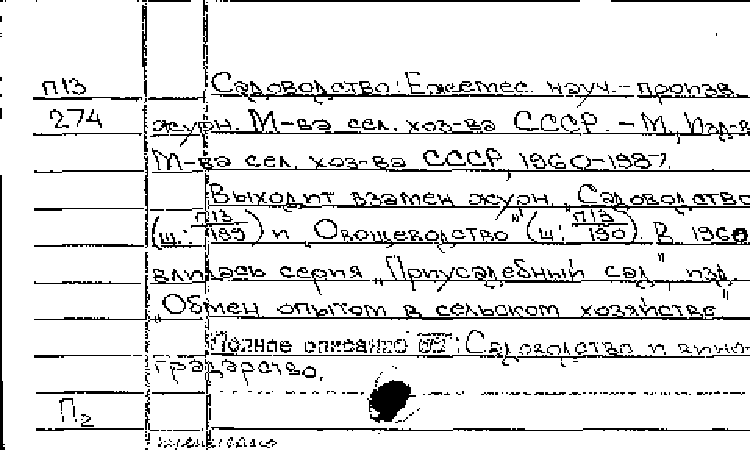 П13 Садоводство: Ежемес. науч.-произв.
274 журн. М-ва сел. хоз-ва СССР. – М., Изд-в
М-ва сел. хоз-ва СССР, 1960–1987.
Выходит взамен журн. „Садоводство
(ш: П13/199) и „Овощеводство" (ш: П13/190). В 1960
влилась серия „Приусадебный сад" изд.
„Обмен опытом в сельском хозяйстве"
Полное описание : Садоводство и вино-
градарство.
П2